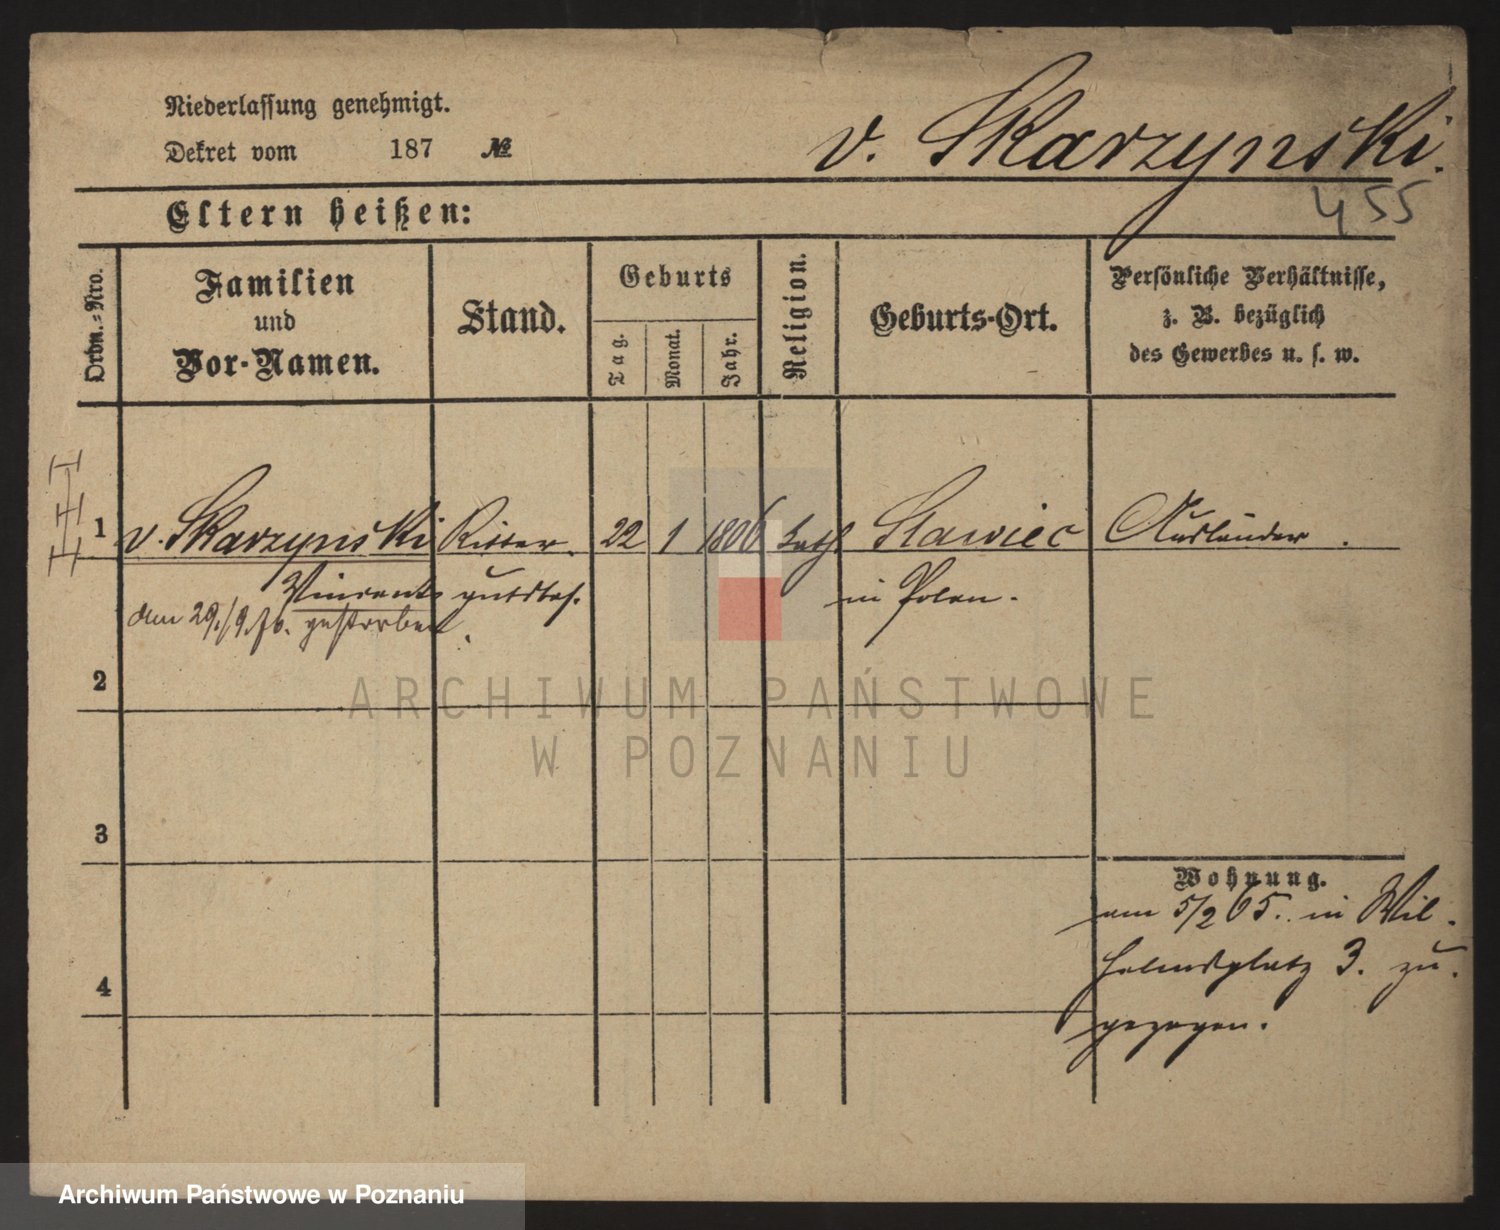 Niederlassung genehmigt.
Dekret vom 187 №
v. Skarzynski.
455
Eltern heißen:
Ordn.-Nro.
Familien
und
Vor-Namen.
Stand.
Geburts
Tag.
Monat.
Jahr.
Religion.
Geburts-Ort.
Persönliche Verhältnisse,
z. B. bezüglich
des Gewerbes u. s. w.
1 v. Skarzynski Ritter 22 1 1806 kath Slawiec Ausländer.
Vincent gutsbes. in Polen.
den 29./9.76. gestorben.
2
3
4
Wohnung.
am 5/2 65. in Wil-
helmsplatz 3. zu-
gezogen.
ARCHIWUM PAŃSTWOWE
W POZNANIU
Archiwum Państwowe w Poznaniu